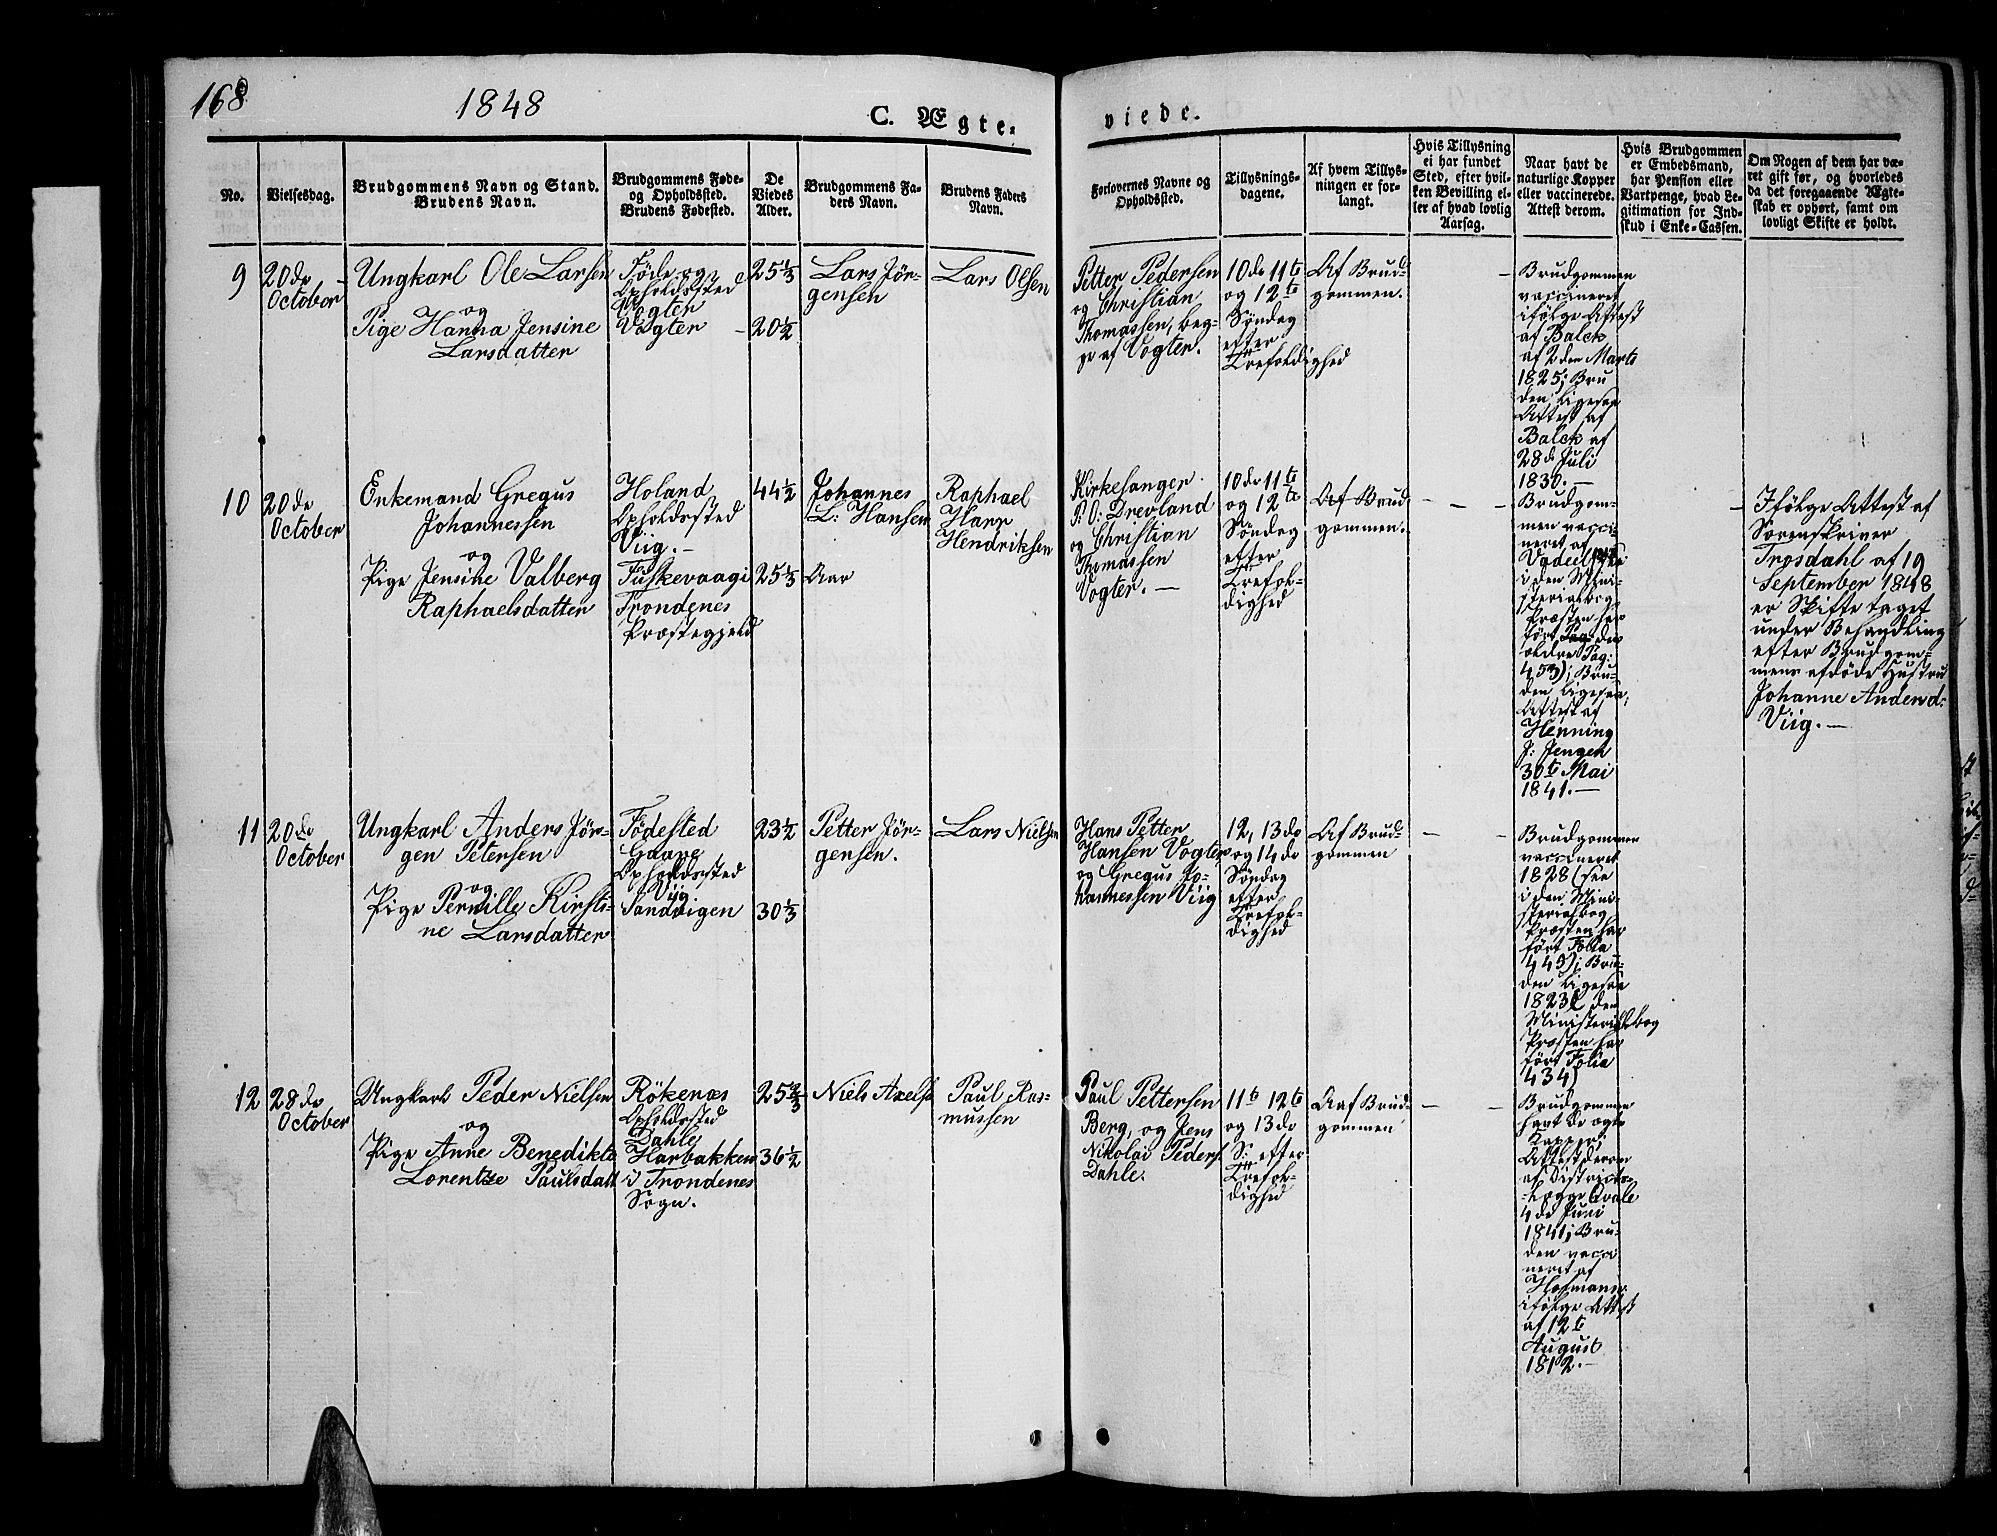 168
1848
C. Ægte-
viede.
No.
Vielsesdag.
Brudgommens Navn og Stand.
Brudens Navn.
Brudgommens Føde-
og Opholdssted.
Brudens Fødested.
De
Viedes
Alder.
Brudgommens Fa-
ders Navn.
Brudens Faders
Navn.
Forlovernes Navne og
Opholdssted.
Tillysnings-
dagene.
Af hvem Tillys-
ningen er for-
langt.
Hvis Tillysning
ei har fundet
Sted, efter hvil-
ken Bevilling el-
ler af hvad lovlig
Aarsag.
Naar havt de
naturlige Kopper
eller vaccinerede.
Attest derom.
Hvis Brudgommen
er Embedsmand,
har Pension eller
Vartpenge, hvad Le-
gitimation for Ind-
skud i Enke-Cassen.
Om Nogen af dem har væ-
ret gift før, og hvorledes
da det foregaaende Ægte-
skab er ophørt, samt om
lovligt Skifte er holdt.
9
20de
October
Ungkarl Ole Larsen
og
Pige Hanna Jensine
Larsdatter
Føde og
Opholdssted
Vogter
Vogter
25 1/3
20 1/2
Lars Jör-
gensen
Lars Olsen
Petter Pedersen
og Christian
Thomassen, beg-
ge af Vogter.
10de 11te
og 12te
Søndag
efter
Trefoldighed
Af Brud-
gommen.
Brudgommen
vaccineret
ifölge Attest
af Balck
af 2den Marts
1825; Bru
den ligesaa
Attest af
Balck af
28de Juli
1830.-
10
20de
October
Enkemand Gregus
Johannessen
og
Pige Jensine Valberg
Raphaelsdatter
Holand
Opholdssted
Viig.-
Fuskevaag i
Trondenes
Præstegjeld
44 1/2
25 1/3 Aar
Johannes
L: Hansen
Raphael
Hendriksen
Kirkesanger
P. O: Drevland
og Christian
Thomassen
Vogter.-
10de 11te
og 12te
Søndag
efter
Trefol-
dighed
Af Brud-
gommen.
Brudgom-
men vacci-
neret af
i den Mini-
sterialbog
Præsten har
fört Pag: den
ældre Pag:
453); Bru-
den ligesaa,
Attest af
Henning
J: Jensen
30te Mai
1841.-
Ifølge Attest af
Sorenskriver
Trosdahl af 19
September 1848
er Skifte taget
under Behandling
efter Brudgom-
mens afdøde Hustru
Johanne Andersd:
Viig.-
11
20de
October
Ungkarl Anders Jör-
gen Petersen
og
Pige Pernille Kirsti-
ne Larsdatter
Födested
Gaare
Opholdssted
Viig
Sandvigen
23 1/2
30 1/3
Petter Jör-
gensen.
Lars Nielsen
Hans Petter
Hansen Vogter
og Gregus Jo-
hannessen Viig
12, 13de
og 14de
Søndag
efter
Trefol-
dighed
Af Brud-
gommen
Brudgommen
vaccineret
1828 (see
i den Mini-
sterialbog
Præsten har
fört Folia
449); Bru-
den ligesaa
1823( den
Ministerialbog
Præsten har
fört Folia
434)
12
28de
October
Ungkarl Peder Nielsen
og
Pige Anne Benedikte
Lorentze Paulsdatt
Rökenæs
Opholdssted
Dahle
Harbakken
i Trondenes
Sogn.
25 2/3
36 1/2
Niels Axels
Paul Ras-
mussen
Paul Pettersen
Berg, og Jens
Nikolai Peders:
Dahle.
11te 12te
og 13de
S: efter
Trefol-
dighed
Aaf Brud-
gommen
Brudgommen
havt de ægte
Kopper;
Attest derom
af Districts-
Læge Qvale
4de Juni
1841; Bru-
den vacci
neret af
Hofmann
ifölge Attest
af 12te
August
1812.-